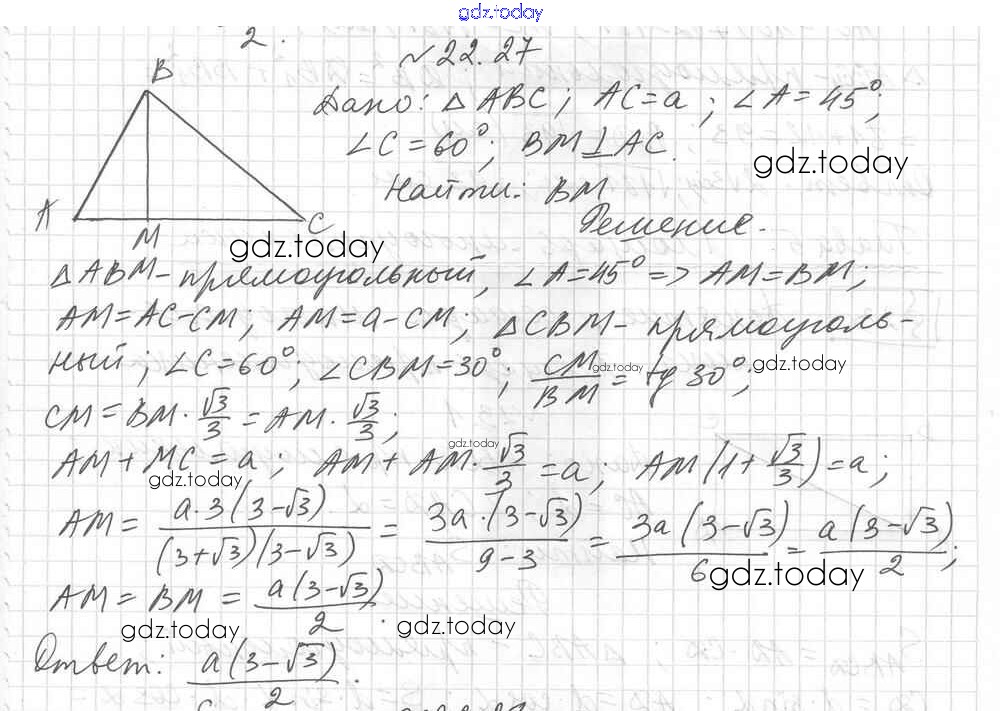 gdz.today
2.
№ 22.27
B
Дано: △ABC; AC=a; ∠A=45°;
∠C=60°; BM⊥AC.
gdz.today
Найти: BM
A
M
C
Решение.
gdz.today
△ABM-прямоугольный, ∠A=45° => AM=BM;
AM=AC-CM; AM=a-CM; △CBM-прямоуголь-
ный; ∠C=60°; ∠CBM=30°; CM/BM = tg 30°;
gdz.today
gdz.today
CM = BM·√3/3 = AM·√3/3;
gdz.today
AM+MC=a; AM+AM·√3/3=a; AM(1+√3/3)=a;
gdz.today
AM = a·3(3-√3)/(3+√3)(3-√3) = 3a·(3-√3)/9-3 = 3a(3-√3)/6 = a(3-√3)/2;
gdz.today
AM = BM = a(3-√3)/2.
gdz.today
gdz.today
Ответ: a(3-√3)/2.